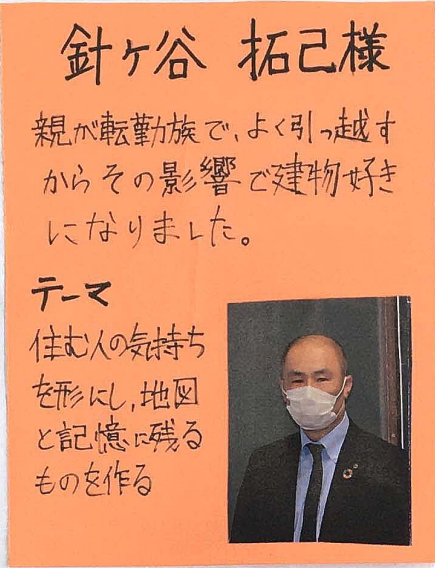 針ヶ谷 拓己様
親が転勤族で、よく引っ越す
からその影響で建物好き
になりました。
テーマ
住む人の気持ち
を形にし、地図
と記憶に残る
ものを作る